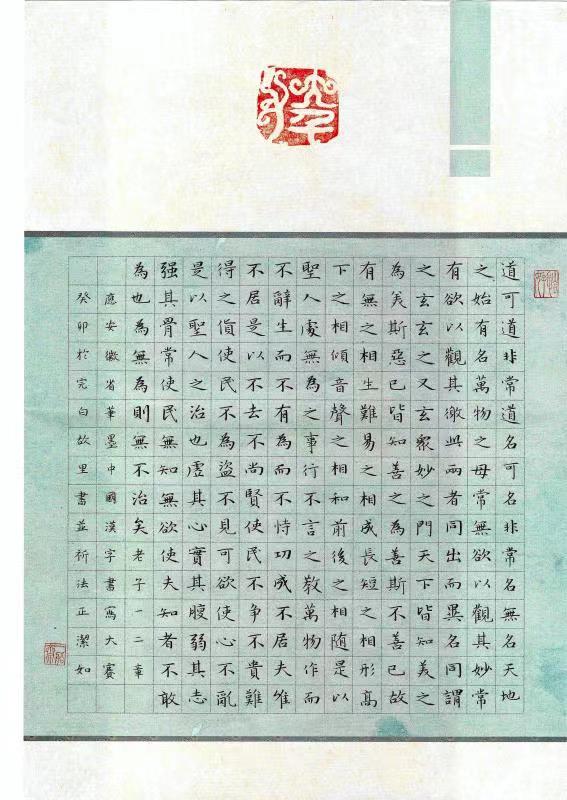 道可道非常道名可名非常名無名天地
之始有名萬物之母常無欲以觀其妙常
有欲以觀其徼此兩者同出而異名同謂
之玄玄之又玄眾妙之門天下皆知美之
為美斯惡已皆知善之為善斯不善已故
有無之相生難易之相成長短之相形高
下之相傾音聲之相和前後之相随是以
聖人處無為之事行不言之教萬物作而
不辭生而不有為而不恃功成不居夫唯
不居是以不去不尚賢使民不争不貴難
得之貨使民不為盜不見可欲使心不亂
是以聖人之治也虛其心實其腹弱其志
强其骨常使民無知無欲使夫知者不敢
為也為無為則無不治矣老子一二章
應安徽省筆墨中國漢字書寫大賽
癸卯於完白故里書並祈法正潔如